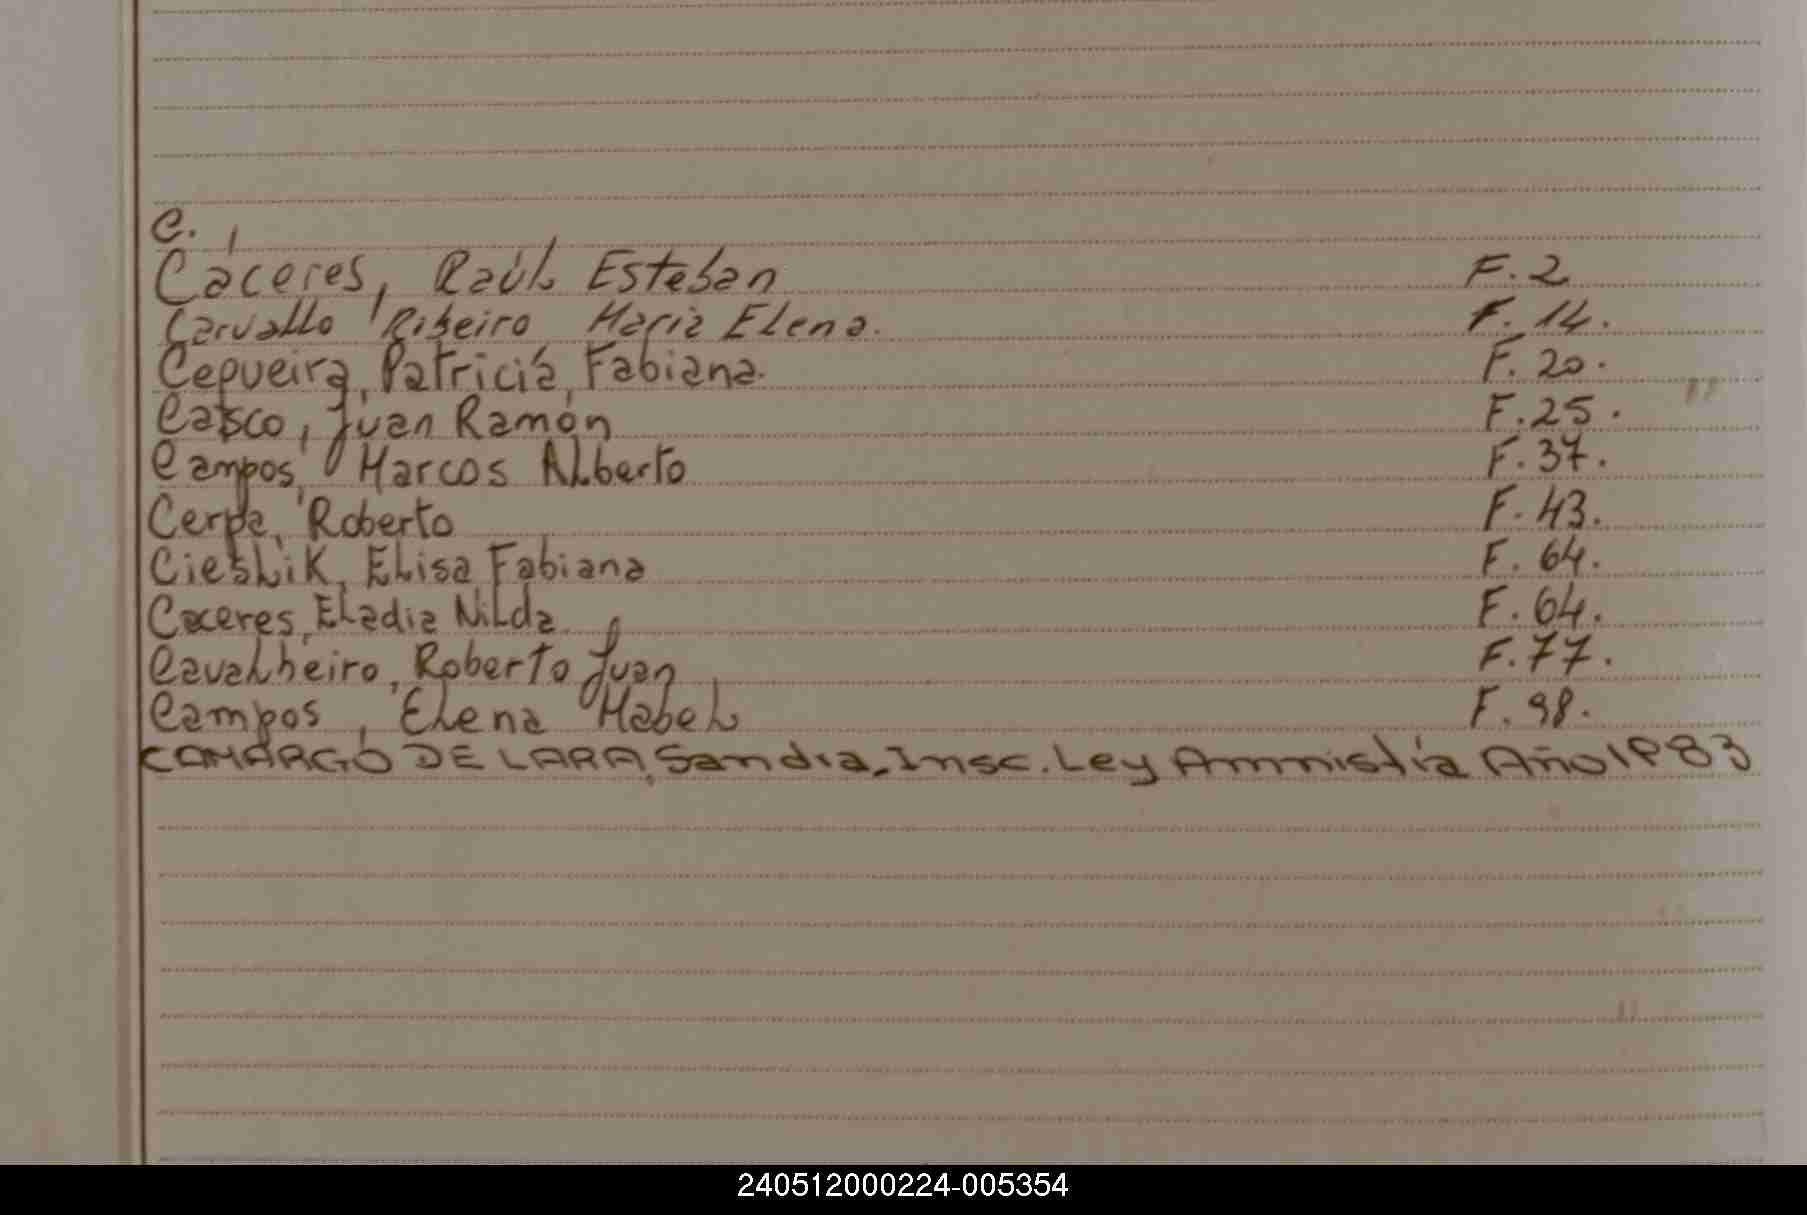 C.
Cáceres, Raúl Esteban F. 2
Carvallo Ribeiro Maria Elena. F. 14.
Cequeira, Patricia, Fabiana. F. 20.
Casco, Juan Ramón F. 25.
Campos, Marcos Alberto F. 37.
Cerpa, Roberto F. 43.
Cieslik, Elisa Fabiana F. 64.
Caceres, Eladia Nilda F. 64.
Cavalheiro, Roberto Juan F. 77.
Campos, Elena Mabel F. 98.
CAMARGO DE LARA, Sandra, Insc. Ley Amnistía Año 1983
240512000224-005354